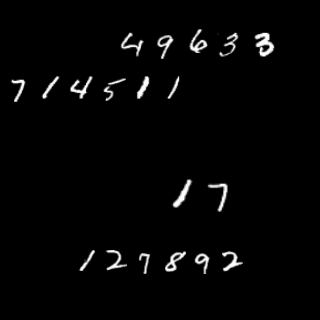 49633
714511
17
127892